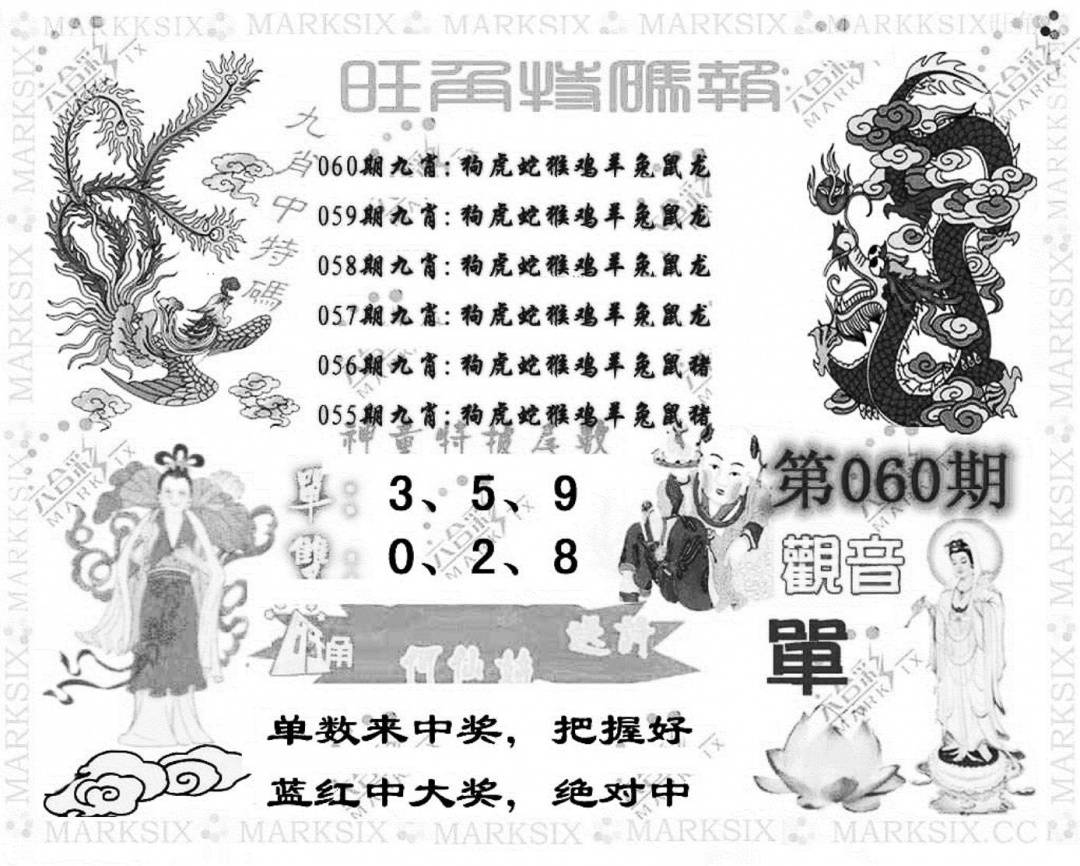 MARKSIX MARKSIX MARKSIX MARKSIX MARKKSIX
旺角特碼報
九肖中特碼
060期九肖:狗虎蛇猴鸡羊兔鼠龙
059期九肖:狗虎蛇猴鸡羊兔鼠龙
058期九肖:狗虎蛇猴鸡羊兔鼠龙
057期九肖:狗虎蛇猴鸡羊兔鼠龙
056期九肖:狗虎蛇猴鸡羊兔鼠猪
055期九肖:狗虎蛇猴鸡羊兔鼠猪
神童特披尾數
第060期
單:3、5、9
雙:0、2、8
觀音
單
何仙姑
单数来中奖，把握好
蓝红中大奖，绝对中
MARKSIX MARKSIX MARKSIX MARKSIX MARKSIX.CC